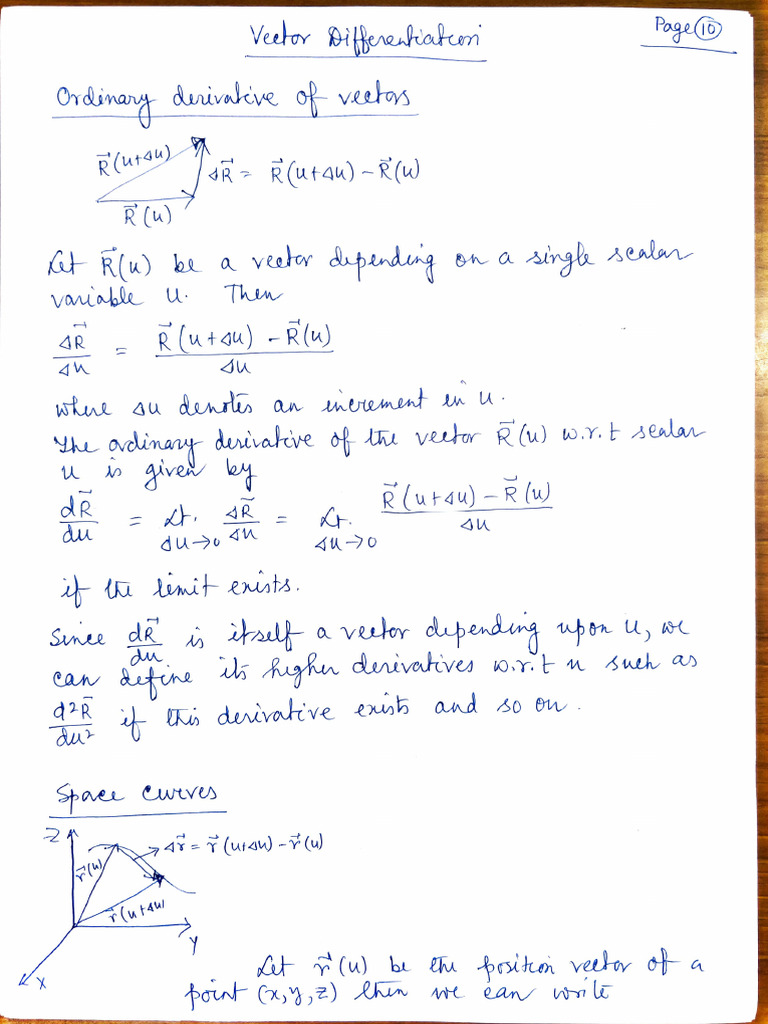 Page 10
Vector Differentiation
Ordinary derivative of vectors
R⃗(u+Δu)
ΔR⃗ = R⃗(u+Δu) − R⃗(u)
R⃗(u)
Let R⃗(u) be a vector depending on a single scalar
variable u. Then
ΔR⃗/Δu = (R⃗(u+Δu) − R⃗(u))/Δu
where Δu denotes an increment in u.
The ordinary derivative of the vector R⃗(u) w.r.t scalar
u is given by
dR⃗/du = Lt. Δu→0 ΔR⃗/Δu = Lt. Δu→0 (R⃗(u+Δu) − R⃗(u))/Δu
if the limit exists.
Since dR⃗/du is itself a vector depending upon u, we
can define its higher derivatives w.r.t u such as
d²R⃗/du² if this derivative exists and so on.
Space curves
Z
Δr⃗ = r⃗(u+Δu) − r⃗(u)
r⃗(u)
r⃗(u+Δu)
Y
X
Let r⃗(u) be the position vector of a
point (x,y,z) then we can write